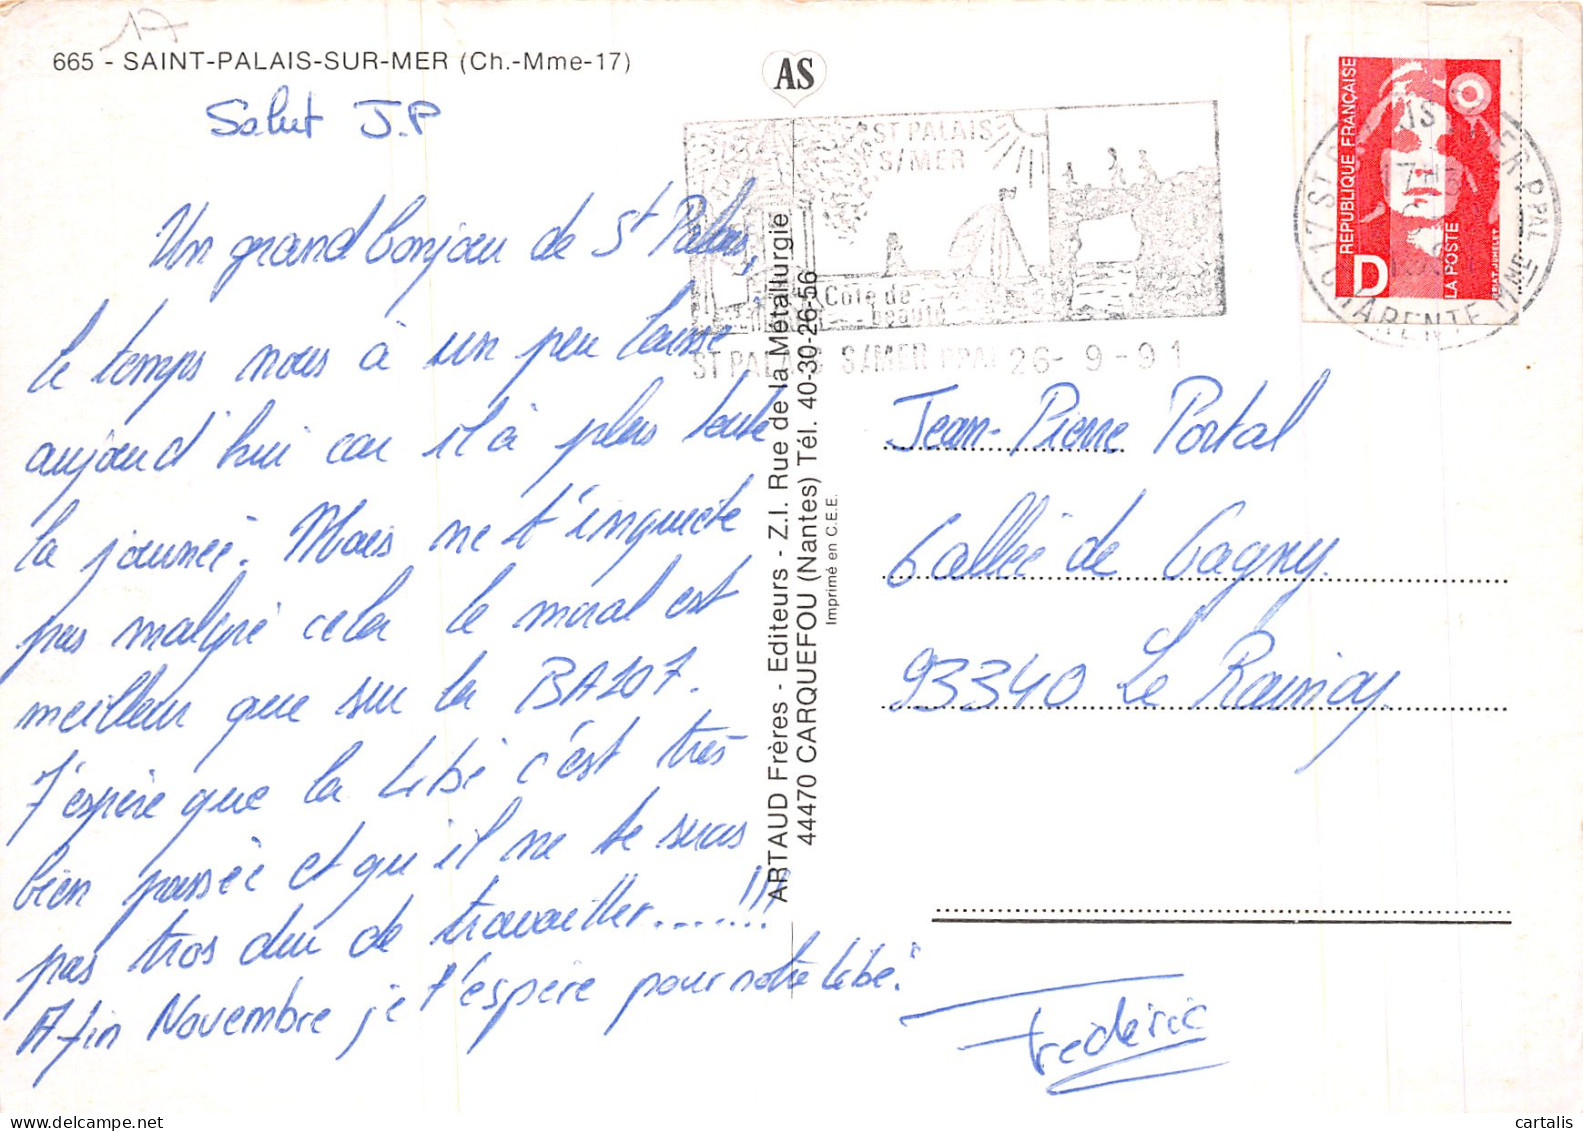 17
665 - SAINT-PALAIS-SUR-MER (Ch.-Mme-17)
AS
Salut J.P
Un grand bonjour de St Palais,
le temps nous à un peu laissé
aujourd'hui car il à plus toute
la journée. Mais ne t'inquiete
pas malgré cela le moral est
meilleur que sur la BA107.
J'espère que la Libé c'est très
bien passée et qu'il ne te seras
pas tros dur de travailler.......!!!
A fin Novembre je l'espère pour notre Libé.
Frédéric
ARTAUD Frères - Editeurs - Z.I. Rue de la Métallurgie
44470 CARQUEFOU (Nantes) Tél. 40-30-26-56
Imprimé en C.E.E.
ST PALAIS
S/MER
Côte de
beauté
ST PALAIS S/MER PPAL 26-9-91
RÉPUBLIQUE FRANÇAISE
D
LA POSTE
17 ST PALAIS S/MER PPAL
CHARENTE MME
Jean-Pierre Portal
6 allée de Gagny.
93340 Le Raincy.
cartalis